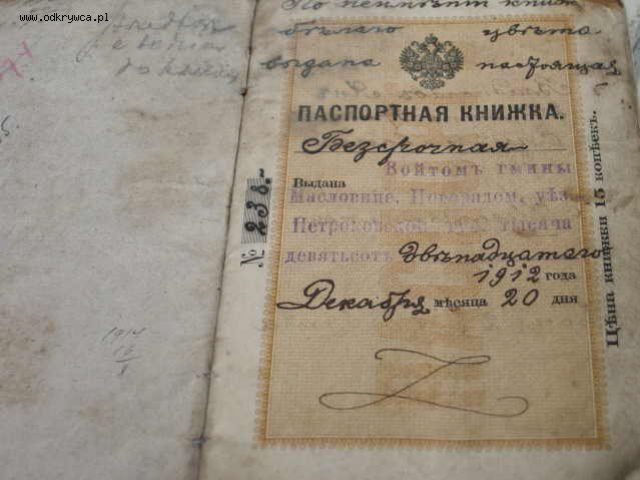 www.odkrywca.pl
По неимѣнію книж
бѣлаго цвѣта
выдана настоящая
ПАСПОРТНАЯ КНИЖКА.
Безсрочная
Войтомъ гмины
Выдана
Масловице, Новорадом. уѣз.
Петроковской губ. тысяча
девятьсотъ двѣнадцатаго
1912 года
Декабря мѣсяца 20 дня
№ 238.-
Цѣна книжки 15 копѣекъ.
1914
12
1